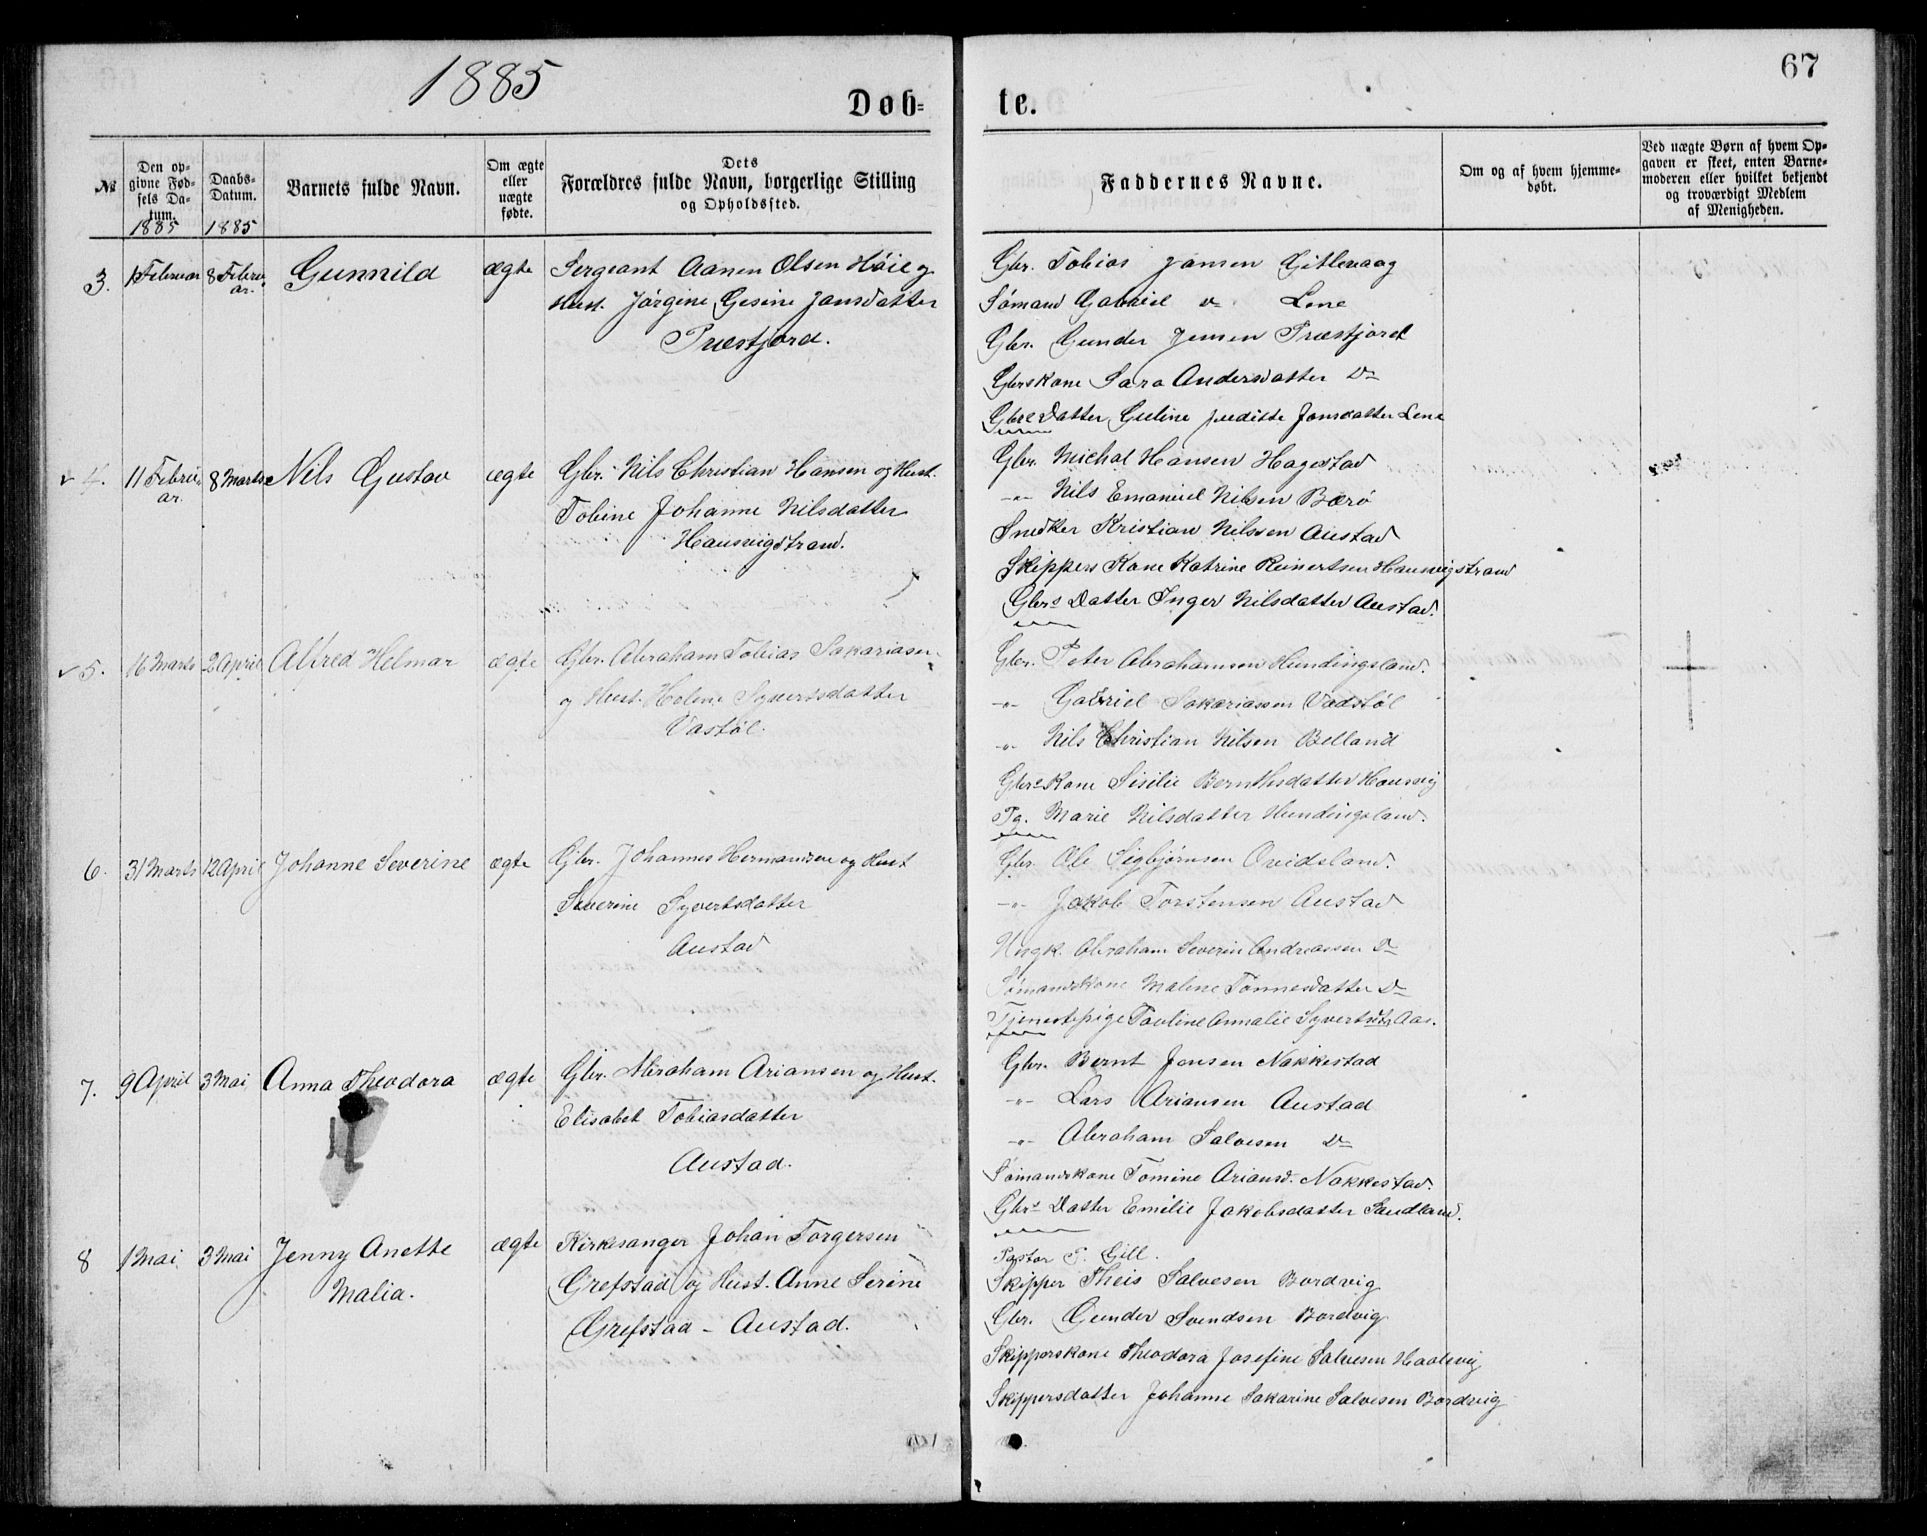 1885
67
Døb-
te.
№
Den op-
givne Fød-
sels Da-
tum.
1885
Daabs-
Datum.
1885
Barnets fulde Navn.
Om ægte
eller
uægte
fødte.
Dets
Forældres fulde Navn, borgerlige Stilling
og Opholdssted.
Faddernes Navne.
Om og af hvem hjemme-
døbt.
Ved uægte Børn af hvem Op-
gaven er skeet, enten Barne-
moderen eller hvilket bekjendt
og troværdigt Medlem
af Menigheden.
3. Februar 8 Febru- Gunnild ægte Sergeant Aanen Olsen Høie og
ar.
Hust. Jørgine Gesine Jansdatter
Træstjord.
Gbr. Tobias Jansen Gitlevaag
Sømand Gabriel Do Lene
Gbr. Gunder Jensen Træstjord
Gbrskone Sara Andersdatter Do
Gbrs Datter Guline Juditte Jansdatter Lene
4. 11 Febru- 8 Marts Nils Gustav ægte Gbr. Nils Christian Hansen og Hust.
ar.
Tobine Johanne Nilsdatter
Hausvigstrand.
Gbr. Michal Hansen Hagestad
-"- Nils Emanuel Nilsen Barø
Snedker Kristian Nilssen Austad
Skippers Kone Katrine Reinertsen Hausvigstrand
Gbrs Datter Inger Nilsdatter Austad.
5. 16 Marts 2 April Alfred Helmar ægte Gbr. Abraham Tobias Sakariasen
og Hust. Helene Syvertsdatter
Vastøl.
Gbr. Peter Abrahamsen Hundingsland.
-"- Gabriel Sakariassen Vadstøl
-"- Nils Christian Nilsen Belland
Gbrs Kone Sisilie Berntsdatter Hausvig
Pg. Marie Nilsdatter Hundingsland.
6. 31 Marts 12 April Johanne Severine ægte Gbr. Johannes Hermansen og Hust
Severine Syvertsdatter
Austad
Gbr. Ole Sigbjørnsen Qvidsland.
-"- Jakob Torstensen Austad
Ungk. Abraham Severin Andreassen Do
Sømandskone Malene Tønnesdatter Do
Tjenestepige Pauline Annalie Syvertsdtr Aas.
7. 9 April 3 Mai Anna Theodora ægte Gbr. Abraham Ariansen og Hust.
Elisabet Tobiasdatter
Austad.
Gbr. Bernt Jensen Nakkestad
-"- Lars Ariansen Austad
-"- Abraham Salvesen Do
Sømandskone Tomine Ariansd. Nakkestad.
Gbrs Datter Emilie Jakobsdatter Sandland.
8 1 Mai 3 Mai Jenny Anette ægte Kirkesanger Johan Torgersen
Malia.
Grefstad og Hust. Anne Serine
Grefstad – Austad.
Pastor P. Gill.
Skipper Theis Salvesen Bordvig
Gbr. Gunder Svendsen Bordvig
Skipperskone Theodora Josefine Salvesen
Skippersdatter Johanne Sakarine Salvesen Bordvig